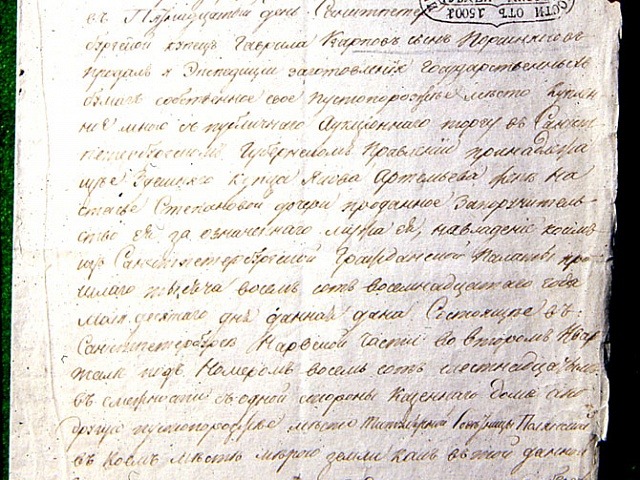 въ Пятнадцатый день Санктпете
бургской купец Гаврила Карповъ сынъ
продалъ я Экспедиции заготовления Государственныхъ
бумагъ собственное свое пустопорожнее место куплен
ное мною съ публичнаго Аукционнаго торгу въ Санкт
петербургскомъ Губернскомъ Правлении принадлежа
щее Здешняго Купца Якова Артемьева жене На
стасье Степановой дочери проданное за поручитель
ство ея за означеннаго мужа ея, на владение коимъ
изъ Санктпетербургской Гражданской Палаты про
шлаго тысяча восемь сотъ восемнадцатаго года
маия десятаго дня данная дана. Состоящее въ:
Санктпетербурге Нарвской части во второмъ Квар
тале подъ Номеромъ восемь сотъ шестнадцатымъ
въ смежности съ одной стороны казеннаго дома а по
другую пустопорожнее место титулярной Советницы
въ коемъ месте мерою земли какъ въ той данной